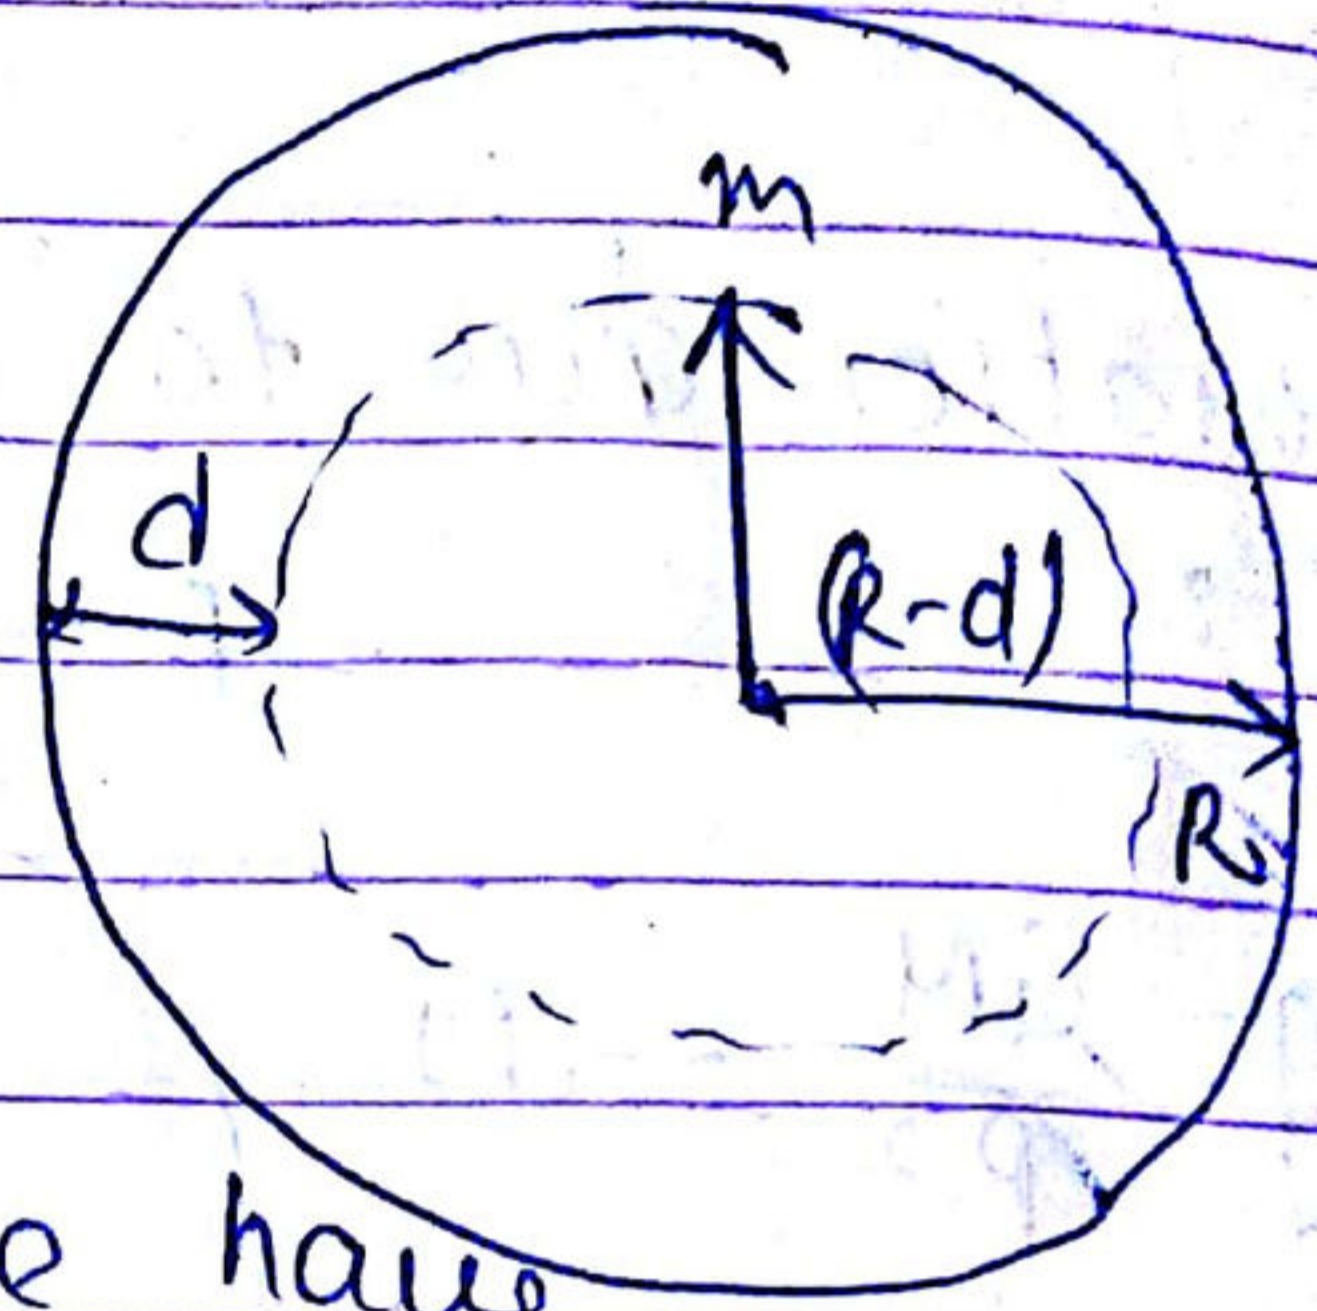 m
d
(R-d)
R
e have